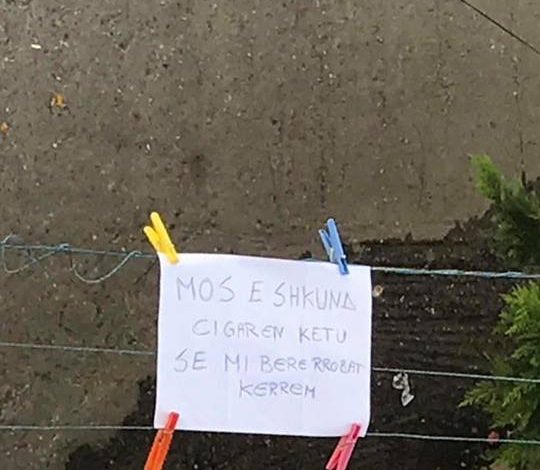 MOS E SHKUND
CIGAREN KETU
SE MI BERE RROBAT
KERREM